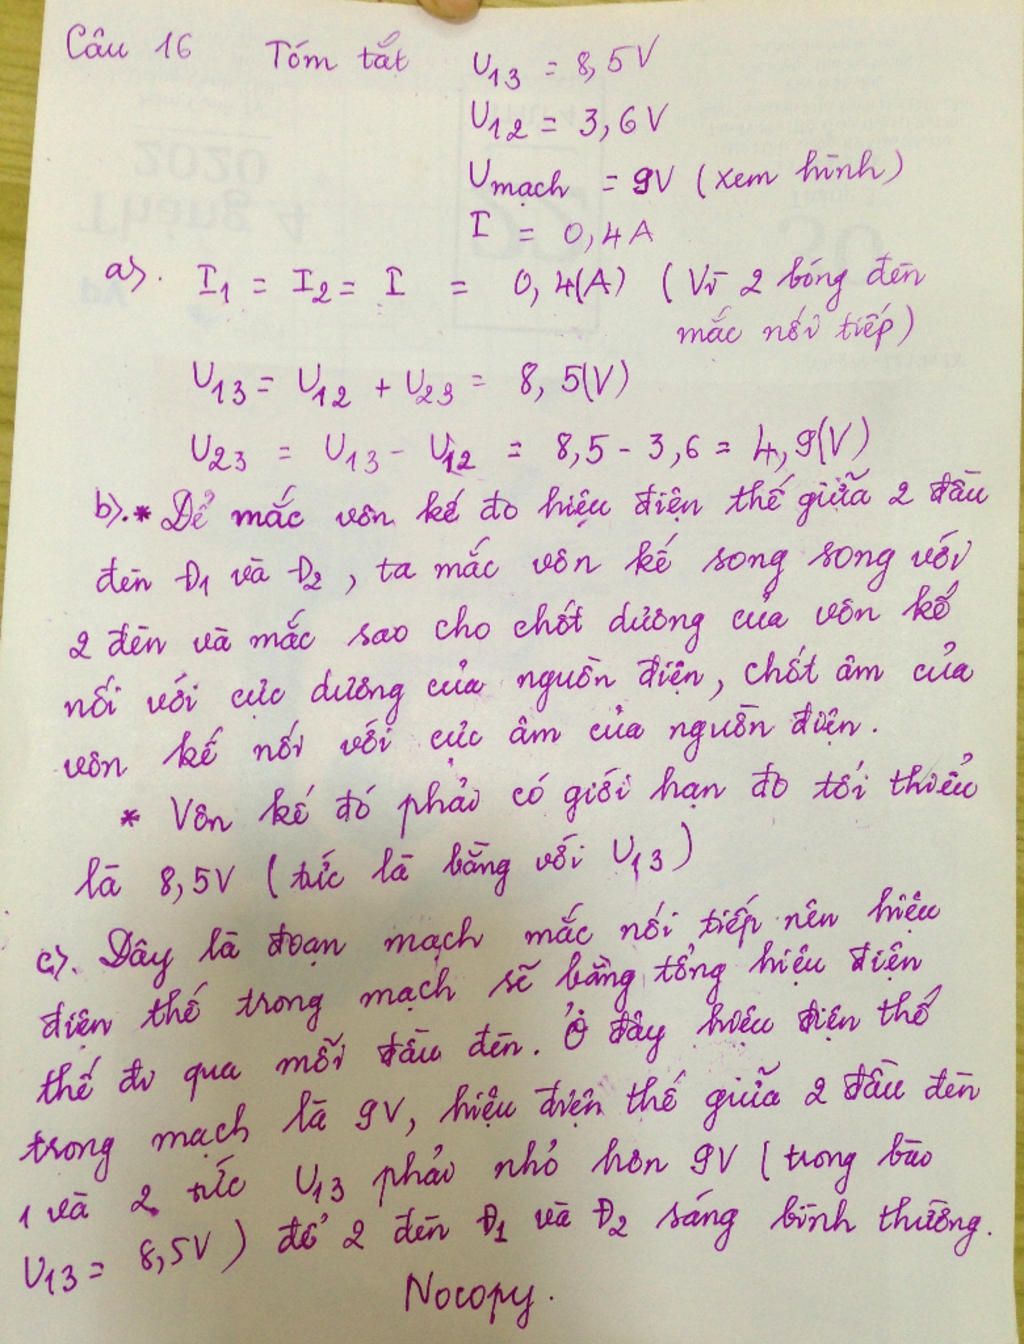 Câu 16 Tóm tắt U13 = 8,5V
U12 = 3,6V
Umạch = 9V (xem hình)
I = 0,4A
a). I1 = I2 = I = 0,4(A) (Vì 2 bóng đèn
mắc nối tiếp)
U13 = U12 + U23 = 8,5(V)
U23 = U13 - U12 = 8,5 - 3,6 = 4,9(V)
b).* Để mắc vôn kế đo hiệu điện thế giữa 2 đầu
đèn Đ1 và Đ2, ta mắc vôn kế song song với
2 đèn và mắc sao cho chốt dương của vôn kế
nối với cực dương của nguồn điện, chốt âm của
vôn kế nối với cực âm của nguồn điện.
* Vôn kế đó phải có giới hạn đo tối thiểu
là 8,5V (tức là bằng với U13)
c). Đây là đoạn mạch mắc nối tiếp nên hiệu
điện thế trong mạch sẽ bằng tổng hiệu điện
thế đi qua mỗi đầu đèn. Ở đây hiệu điện thế
trong mạch là 9V, hiệu điện thế giữa 2 đầu đèn
1 và 2 tức U13 phải nhỏ hơn 9V (trong bào
U13 = 8,5V) để 2 đèn Đ1 và Đ2 sáng bình thường.
Nocopy.
2020
Tháng 4
30